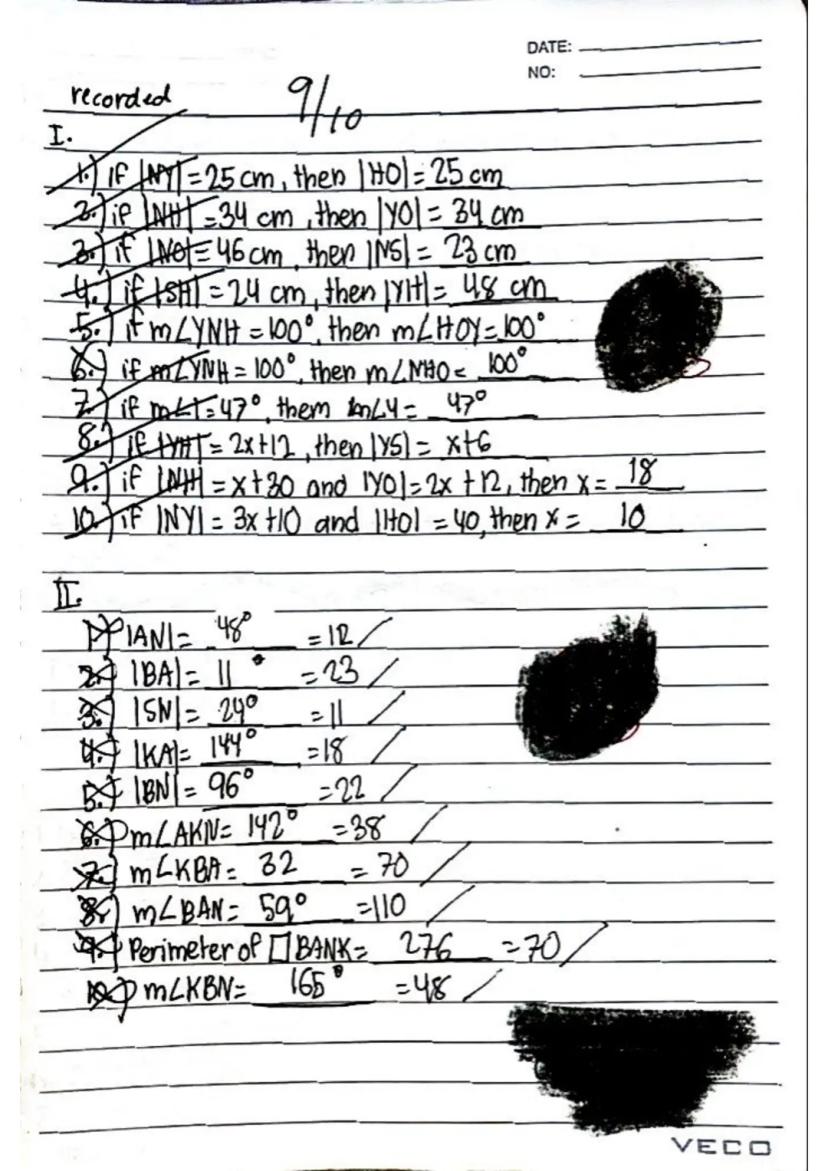 DATE:
NO:
recorded 9/10
I.
1.) if |NY| = 25 cm, then |HO| = 25 cm
2.) if |NH| = 34 cm, then |YO| = 34 cm
3.) if |NO| = 46 cm, then |NS| = 23 cm
4.) if |SH| = 24 cm, then |YH| = 48 cm
5.) if m∠YNH = 100°, then m∠HOY = 100°
6.) if m∠YNH = 100°, then m∠NHO = 100°
7.) if m∠1 = 47°, them m∠4 = 47°
8.) if |YH| = 2x+12, then |YS| = x+6
9.) if |NH| = x+30 and |YO| = 2x+12, then x = 18
10.) if |NY| = 3x+10 and |HO| = 40, then x = 10
II.
1.) |AN| = 48° = 12 /
2.) |BA| = 11° = 23 /
3.) |SN| = 24° = 11 /
4.) |KA| = 144° = 18 /
5.) |BN| = 96° = 22 /
6.) m∠AKN = 142° = 38 /
7.) m∠KBA = 32 = 70 /
8.) m∠BAN = 59° = 110 /
9.) Perimeter of □BANK = 276 = 70 /
10.) m∠KBN = 165° = 48 /
VECO